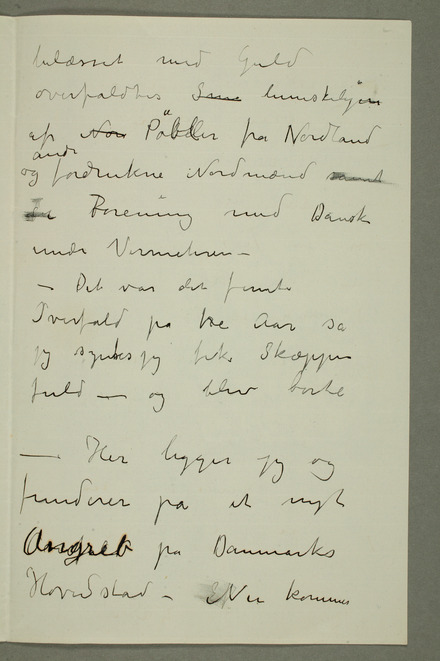 belæsset med Guld
overfaldtes lumskeligen
af Pöbler fra Nordland
og andre fordrukne Nordmænd
Forening med Dansk
under Vermehren –
– Det var det femte
Overfald på tre Aar så
jeg syntes jeg fik Skæppen
fuld – og blev borte
– Her ligger jeg og
funderer på et nyt
Angreb på Danmarks
Hovedstad – Nu kommer